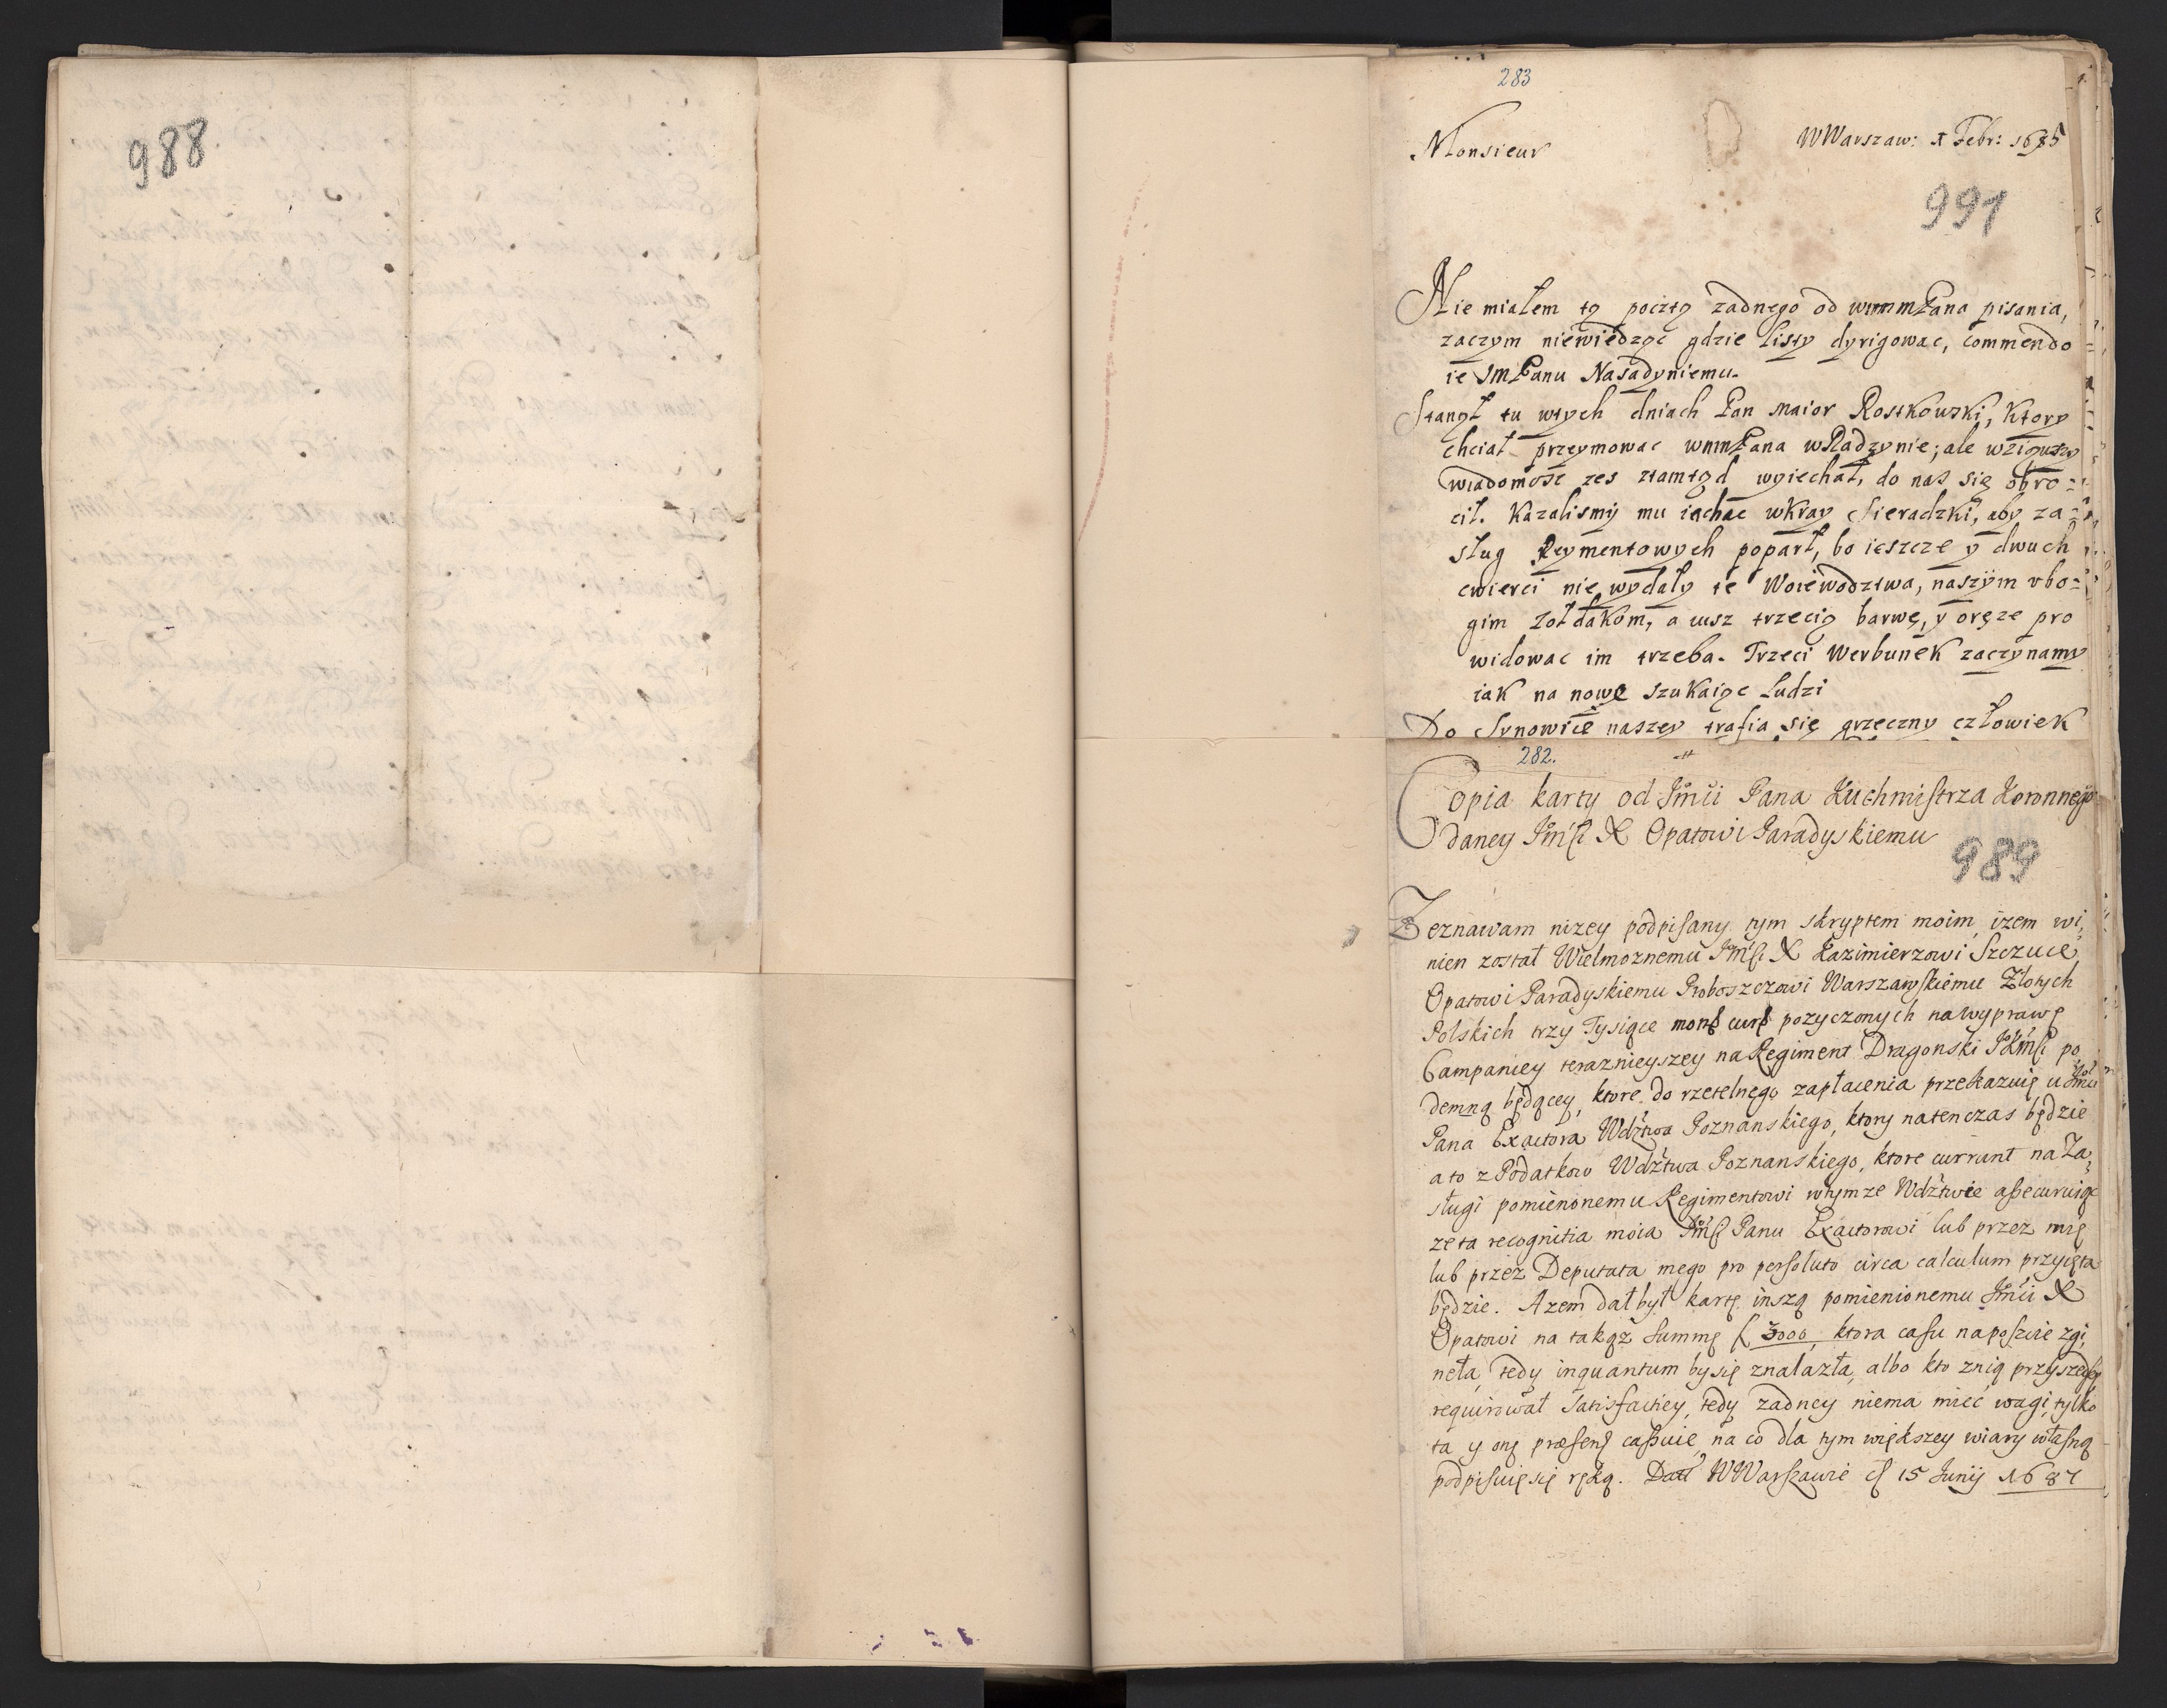 988
283
Monsieur
WWarszaw: 1 Febr: 1685
991
Nie miałem tą pocztą zadnego od wmmPana pisania,
zaczym niewiedząc gdzie listy dyrigowac, commendo
ie JmPanu Nasadyniemu.
Stanął tu wtych dniach Pan Maior Rostkowski, Ktory
chciał przeymowac wmmPana wRadzynie; ale wziąwszy
wiadomosc zes ztamtąd wyiechał, do nas się obro=
cił. Kazalismy mu iachac wKray Sieradzki, aby za=
sług Reymentowych poparł, bo ieszcze y dwuch
cwierci nie wydały te Woiewodztwa, naszym vbo=
gim Zołdakom, a iusz trzecią barwę, y oręze pro
widowac im trzeba. Trzeci Werbunek zaczynamy
iak na nowe szukaiąc Ludzi
Do Synowice naszey trafia się grzeczny człowiek
282.
Copia karty od Jmci Pana Kuchmistrza Koronnego
daney Jmsci X Opatowi Paradyskiemu
989
Zeznawam nizey podpisany tym skryptem moim, izem wi,
nien został Wielmoznemu Jmsci X Kazimierzowi Szczuce
Opatowi Paradyskiemu Proboszczowi Warszawskiemu Złotych
Polskich trzy Tysiące pozyczonych na wyprawę
Campaniey teraznieyszey na Regiment Dragonski JKMsci po
demną będącey, ktore do rzetelnego zapłacenia przekazuię u Jmci
Pana Exactora Wdztwa Poznanskiego, ktory natenczas będzie
a to z Podatkow Wdztwa Poznanskiego, ktore currunt na Za,
sługi pomienonemu Regimentowi wtymze Wdztwie assecuruiąc
ze ta recognitia moia Jmsci Panu Exactorowi lub przez mię
lub przez Deputata mego pro persoluto circa calculum przyięta
będzie. Azem dał był kartę inszą pomienionemu Jmci X
Opatowi na takąz Summę f 3000, ktora casu na poszcie zgi,
neła, tedy inquantum by się znalazła, albo kto znią przyszedszy
requirował Satisfactiey, tedy zadney niema miec wagi, tylko
ta y onę præsens cassuie, na co dla tym większey wiary własną
podpisuię się ręką. Datt WWarszawie 15 Junij 1687